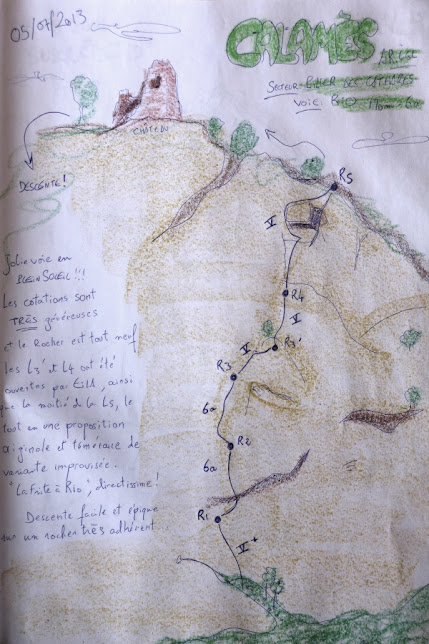 05/07/2013
CALAMÈS
ARIÈGE
SECTEUR PILIER DES CATHARES
VOIE BIO 170m 6a
CHÂTEAU
DESCENTE !
R5
V
R4
V
R3'
V
R3
6a
R2
6a
R1
V+
Jolie voie en
PLEIN SOLEIL !!!
Les cotations sont
TRÈS généreuses
et le Rocher est tout neuf
les L3' et L4 ont été
ouvertes par , ainsi
que la moitié de la L5, le
tout en une proposition
originale et téméraire de
variante improvisée.
"La fuite à Rio", directissime!
Descente facile et épique
sur un rocher TRÈS adhérent